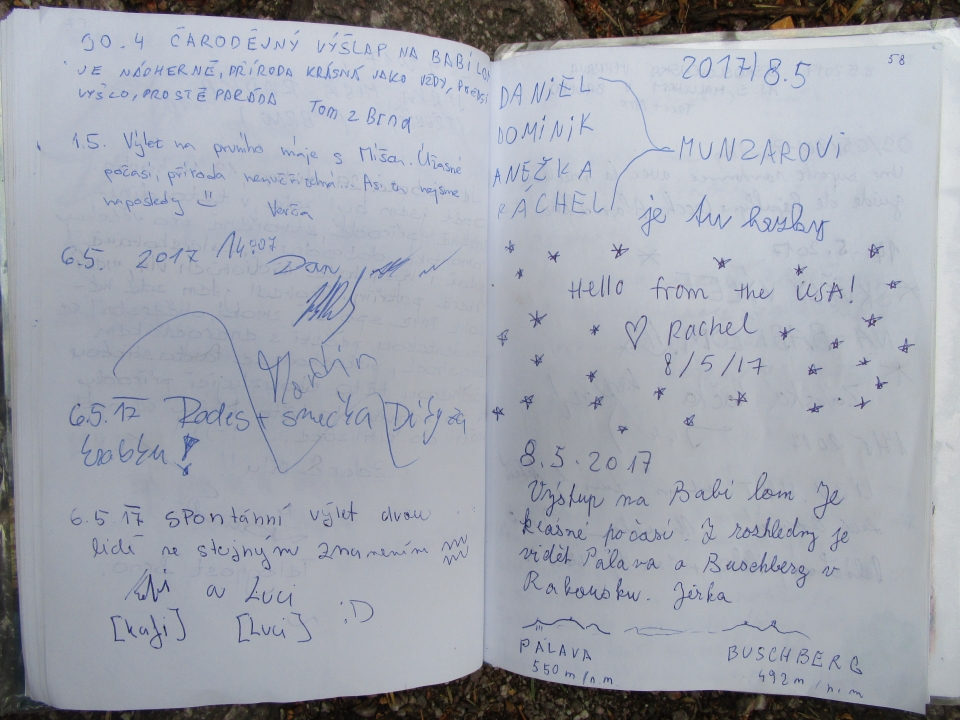 30.4 ČARODĚJNÝ VÝŠLAP NA BABÍ LOM
JE NÁDHERNĚ, PŘÍRODA KRÁSNÁ JAKO VŽDY,
VYŠLO, PROSTĚ PARÁDA
TOM z Brna
1.5. Výlet na prvního máje s Míšou. Úžasné
počasí, příroda neuvěřitelná. Asi tu nejsme
naposledy
Verča
6.5. 2017 14:07 Dan
Martin
6.5.17 Rodes + smečka Díky za
6.5 17 spontánní výlet dvou
lidí ve stejným znamením
a Luci
[Kaji] [Luci] :D
58
2017/8.5
DANIEL
DOMINIK
ANEŽKA
RÁCHEL
MUNZAROVI
je tu hezky
Hello from the USA!
♡ Rachel
8/5/17
8.5.2017
Výstup na Babí lom. Je
krásné počasí. Z rozhledny je
vidět Pálava a Buschberg v
Rakousku. Jirka
PÁLAVA
550 m/n.m.
BUSCHBERG
492 m/n.m